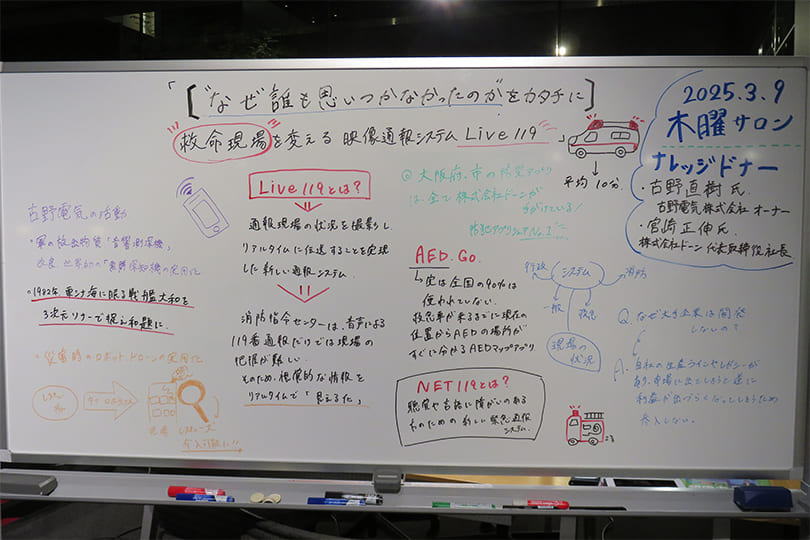 「[なぜ誰も思いつかなかったのかをカタチに]
救命現場を変える 映像通報システム Live119」
2025.3.9
木曜サロン
ナレッジドナー
・古野直樹氏
古野電気株式会社 オーナー
・宮崎正伸氏
株式会社ドーン 代表取締役社長
平均10分
古野電気の活動
・軍の放出物資「音響測深機」
改良、世界初の「魚群探知機の実用化
・1982年 東シナ海に眠る戦艦大和を
3次元ソナーで捉え和題に。
・災害時のロボット、ドローンの実用化
Live119とは?
通報現場の状況を撮影し
リアルタイムに伝送することを実現
した新しい通報システム
消防指令センターは、音声による
119番通報だけでは現場の
把握が難しい
そのため、視覚的な情報を
リアルタイムで「見える化」
◎大阪府・市の防災アプリ
は全て株式会社ドーンが
てがけている!
防犯アプリシェアNo.1
AED.Go.
実は全国の90%は
使われていない
救急車が来るまでに現在の
位置からAEDの場所が
すぐに分かるAEDマップアプリ
NET119とは?
聴覚や言語に障がいのある
人のための新しい緊急通報
システム
行政
システム
消防
一般
救急
現場の
状況
Q.なぜ大手企業は開発
しないの?
A.自社の生産ラインやレガシーが
あり、市場に出てしまうと逆に
利益が出づらくなってしまうため
参入しない。